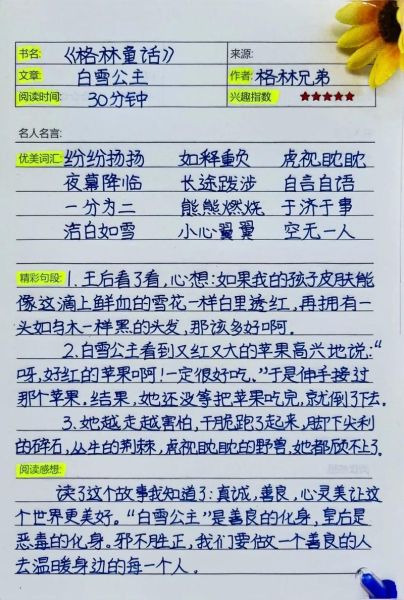 书名: 《格林童话》 来源:
文章: 白雪公主 作者: 格林兄弟
阅读时间: 30分钟 兴趣指数 ★★★★★
名人名言:
优美词汇: 纷纷扬扬 如释重负 虎视眈眈
夜幕降临 长途跋涉 自言自语
一分为二 熊熊燃烧 于济于事
洁白如雪 小心翼翼 空无一人
精彩句段: 1. 王后看了看,心想:如果我的孩子皮肤能
像这滴上鲜血的雪花一样白里透红,再拥有一
头如乌木一样黑的头发,那该多好啊。
2. 白雪公主看到又红又大的苹果高兴地说:“
呀,好红的苹果啊!一定很好吃。”于是伸手接过
那个苹果。结果,她还没等把苹果吃完,就倒了下去。
3. 她越走越害怕,干脆跑了起来,脚下尖利
的碎石,丛生的荆棘,虎视眈眈的野兽,她都顾不上了。
阅读感想:
读了这个故事我知道了:真诚,善良,心灵美让这
个世界更美好。“白雪公主”是善良的化身,皇后是
恶毒的化身。邪不胜正,我们要做一个善良的人
去温暖身边的每一个人。